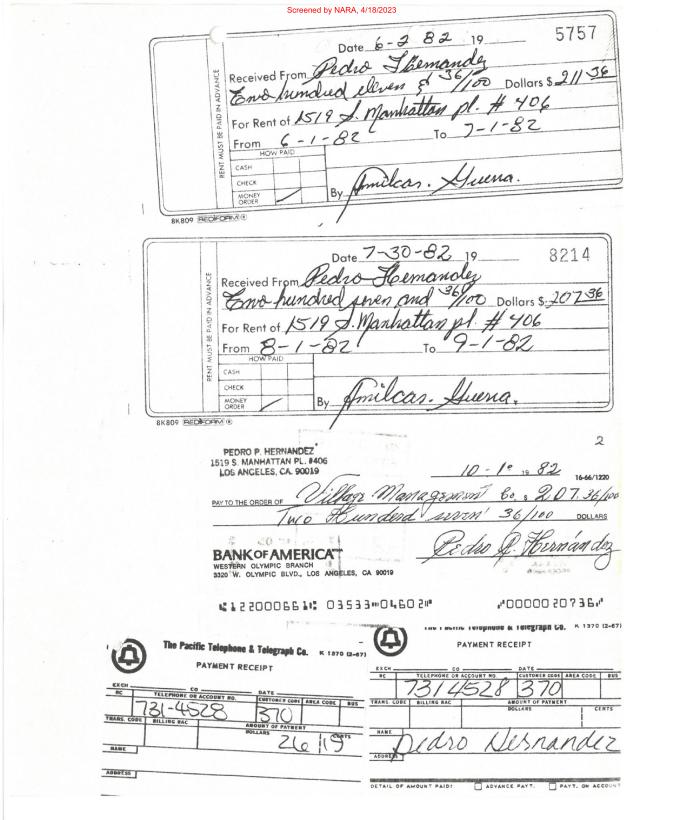 Screened by NARA, 4/18/2023
5757
Date 6-2 82 19
Received From Pedro Hernandez
Two hundred eleven & 36/100 Dollars $ 211 36
For Rent of 1519 S. Manhattan pl. # 406
From 6-1-82 To 7-1-82
RENT MUST BE PAID IN ADVANCE
HOW PAID
CASH
CHECK
MONEY ORDER
By Amilcar. Guerra.
8K809 REDIFORM ®
8214
Date 7-30-82 19
Received From Pedro Hernandez
Two hundred seven and 36/100 Dollars $ 207 36
For Rent of 1519 S. Manhattan pl. # 406
From 8-1-82 To 9-1-82
RENT MUST BE PAID IN ADVANCE
HOW PAID
CASH
CHECK
MONEY ORDER
By Amilcar. Guerra.
8K809 REDIFORM ®
2
PEDRO P. HERNANDEZ
1519 S. MANHATTAN PL. #406
LOS ANGELES, CA. 90019
10-1º 1982
16-66/1220
PAY TO THE ORDER OF Village Management Co. $ 207.36/100
Two Hunderd seven 36/100 DOLLARS
BANK OF AMERICA
WESTERN OLYMPIC BRANCH
3320 W. OLYMPIC BLVD., LOS ANGELES, CA 90019
Pedro P. Hernández
⑆122000661⑆ 03533⑈04602⑈ ⑈0000020736⑈
The Pacific Telephone & Telegraph Co. K 1370 (2-67)
PAYMENT RECEIPT
EXCH CO DATE
RC TELEPHONE OR ACCOUNT NO. CUSTOMER CODE AREA CODE BUS
731-4528 370
TRANS. CODE BILLING RAC AMOUNT OF PAYMENT
DOLLARS CENTS
26 19
NAME
ADDRESS
The Pacific Telephone & Telegraph Co. K 1370 (2-67)
PAYMENT RECEIPT
EXCH CO DATE
RC TELEPHONE OR ACCOUNT NO. CUSTOMER CODE AREA CODE BUS
731 4528 370
TRANS. CODE BILLING RAC AMOUNT OF PAYMENT
DOLLARS CENTS
NAME
Pedro Hernandez
ADDRESS
DETAIL OF AMOUNT PAID: ADVANCE PAYT. PAYT. ON ACCOUNT